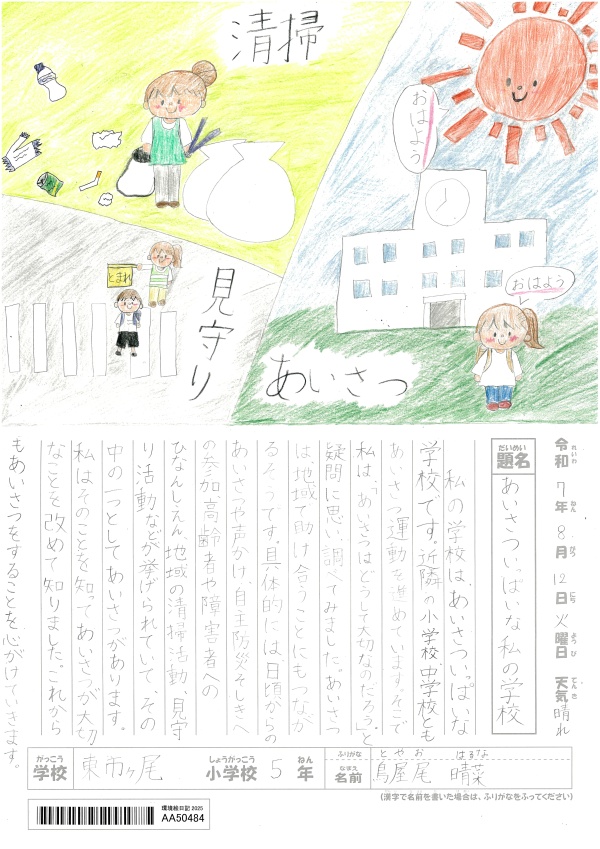 清掃
おはよう
とまれ
見守り
おはよう
あいさつ
令和7年8月12日火曜日 天気晴れ
れいわ ねん がつ にち ようび てんき
だいめい
題名
あいさついっぱいな私の学校
私の学校は、あいさついっぱいな
学校です。近隣の小学校、中学校とも
あいさつ運動を進めています。そこで
私は、「あいさつはどうして大切なのだろう」と
疑問に思い、調べてみました。あいさつ
は地域で助け合うことにもつなが
るそうです。具体的には、日頃からの
あいさつや声かけ、自主防災そしきへ
の参加、高齢者や障害者への
ひなんしえん、地域の清掃活動、見守
り活動などが挙げられていて、その
中の一つとしてあいさつがあります。
私はそのことを知ってあいさつが大切
なことを改めて知りました。これから
もあいさつをすることを心がけていきます。
がっこう
学校
東市ヶ尾
しょうがっこう
小学校
5
ねん
年
ふりがな
とやお はるな
なまえ
名前
鳥屋尾 晴菜
(漢字で名前を書いた場合は、ふりがなをふってください)
環境絵日記 2025
AA50484